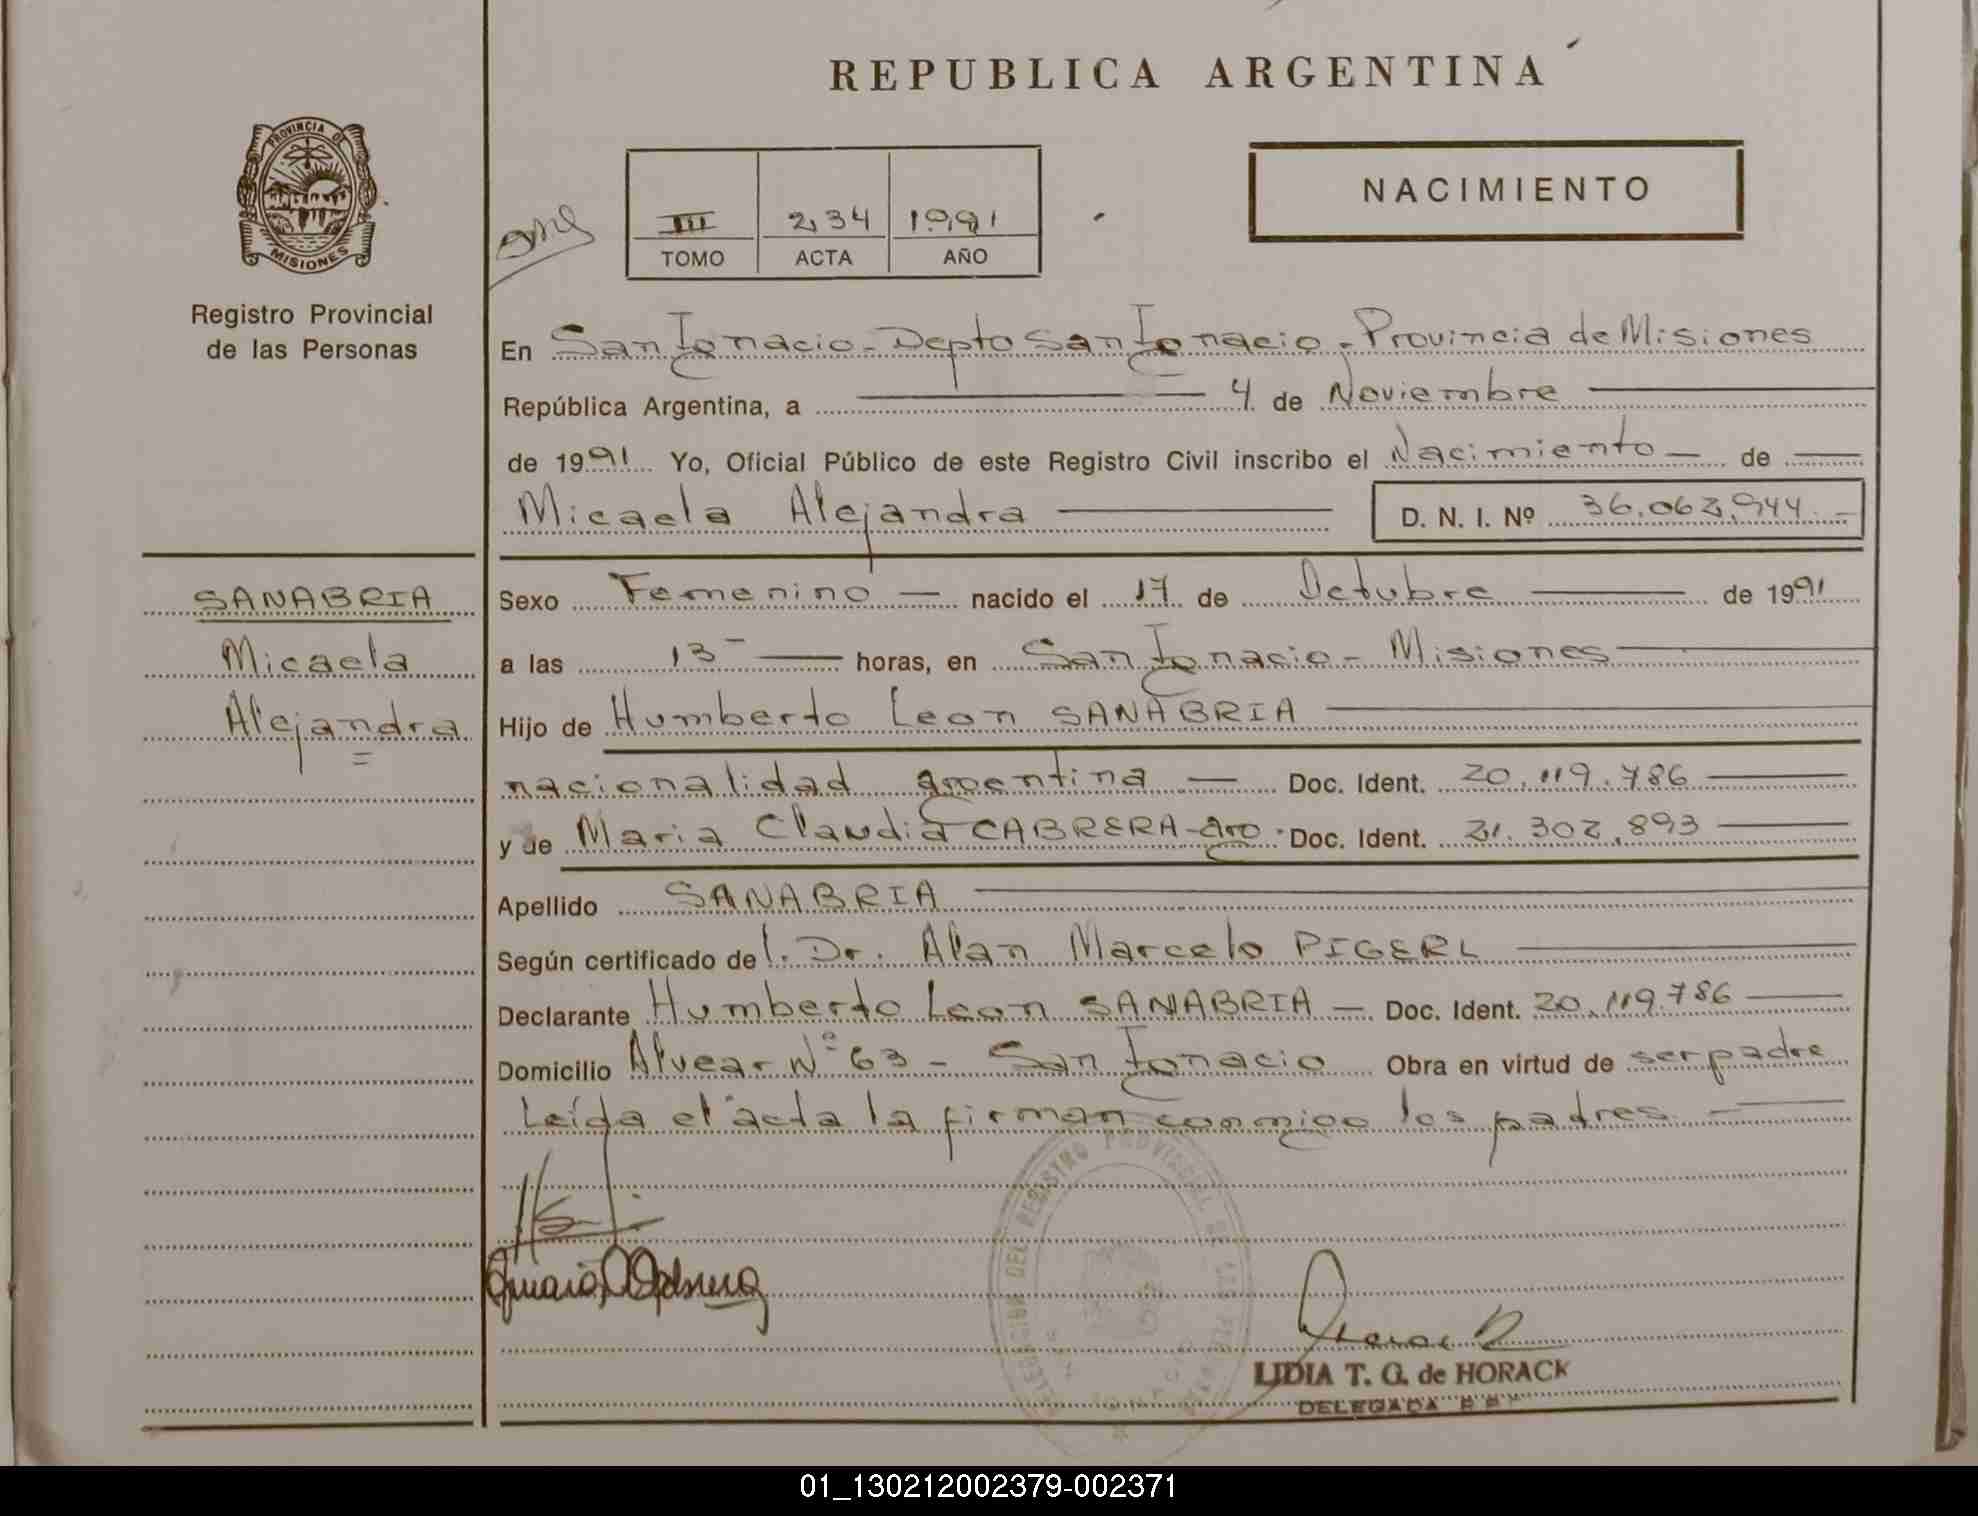 REPUBLICA ARGENTINA
PROVINCIA DE
MISIONES
Registro Provincial
de las Personas
NACIMIENTO
III 234 1991
TOMO ACTA AÑO
En San Ignacio - Depto San Ignacio - Provincia de Misiones
República Argentina, a 4 de Noviembre
de 1991 Yo, Oficial Público de este Registro Civil inscribo el Nacimiento de
Micaela Alejandra D. N. I. Nº 36.062.944
SANABRIA
Micaela
Alejandra
Sexo Femenino nacido el 17 de Octubre de 1991
a las 13 horas, en San Ignacio - Misiones
Hijo de Humberto Leon SANABRIA
nacionalidad argentina Doc. Ident. 20.119.786
y de Maria Claudia CABRERA - arg. Doc. Ident. 21.302.893
Apellido SANABRIA
Según certificado del Dr. Alan Marcelo PIGERL
Declarante Humberto Leon SANABRIA Doc. Ident. 20.119.786
Domicilio Alvear Nº 63 - San Ignacio Obra en virtud de ser padre
Leída el acta la firman conmigo los padres.
DELEGACION DEL REGISTRO PROVINCIAL DE LAS PERSONAS
LIDIA T. G. de HORACK
DELEGADA
01_130212002379-002371